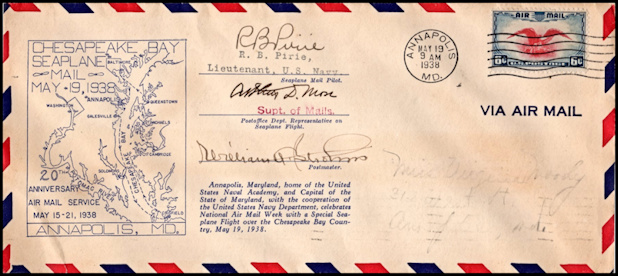 CHESAPEAKE BAY
SEAPLANE
MAIL
MAY 19, 1938
BALTIMORE
WASHINGTON
ANNAPOLIS
QUEENSTOWN
GALESVILLE
ST. MICHAELS
CAMBRIDGE
SOLOMONS
CHESAPEAKE BAY
POTOMAC RIVER
CRISFIELD
20TH
ANNIVERSARY
AIR MAIL SERVICE
MAY 15-21, 1938
ANNAPOLIS, MD.
R B Pirie
R. B. Pirie,
Lieutenant, U.S. Navy.
Seaplane Mail Pilot.
Supt. of Mails.
Postoffice Dept. Representative on
Seaplane Flight.
Postmaster.
Annapolis, Maryland, home of the United
States Naval Academy, and Capital of the
State of Maryland, with the cooperation of
the United States Navy Department, celebrates
National Air Mail Week with a Special Sea-
plane Flight over the Chesapeake Bay Coun-
try, May 19, 1938.
ANNAPOLIS
MAY 19
9 AM
1938
MD.
AIR MAIL
6¢ U.S. POSTAGE 6¢
VIA AIR MAIL
Miss